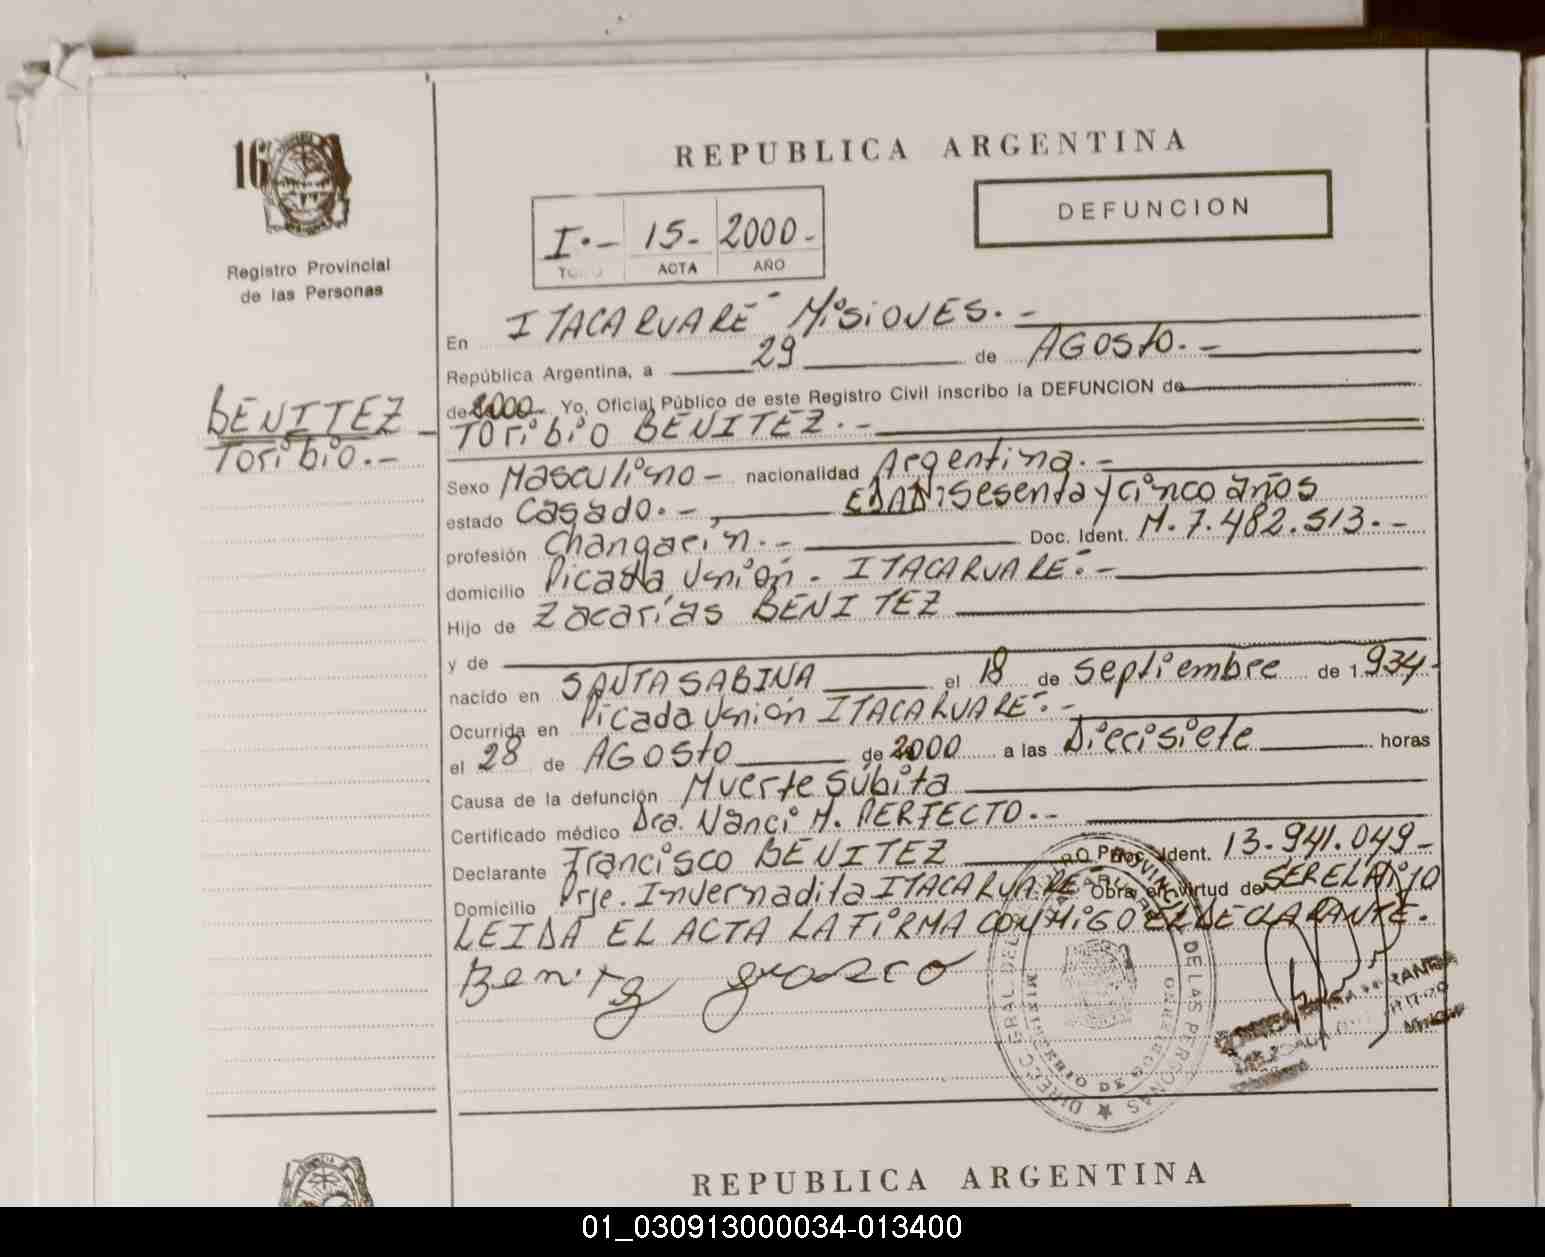 16
Registro Provincial
de las Personas
BENITEZ
Toribio.-
REPUBLICA ARGENTINA
I.- 15- 2000-
TOMO ACTA AÑO
DEFUNCION
En ITACARUARE Misiones.-
República Argentina, a 29 de AGOSTO.-
de 2000 Yo, Oficial Público de este Registro Civil inscribo la DEFUNCION de
Toribio BENITEZ.-
Sexo Masculino- nacionalidad Argentina.-
estado Casado.-, EDAD: sesenta y cinco años
profesión Changarín.- Doc. Ident. M.7.482.513.-
domicilio Picada Unión. ITACARUARE.-
Hijo de Zacarías BENITEZ
y de
nacido en SANTA SABINA el 18 de septiembre de 1.934-
Ocurrida en Picada Unión ITACARUARE.-
el 28 de AGOSTO de 2000 a las Diecisiete horas
Causa de la defunción Muerte Súbita
Certificado médico Dra. Nanci M. PERFECTO.-
Declarante Francisco BENITEZ Doc. Ident. 13.941.049-
Domicilio Prje. Invernadita ITACARUARE Obra en virtud de SER EL HIJO
LEIDA EL ACTA LA FIRMA CONMIGO EL DECLARANTE.
DE LAS PERSONAS
MINISTERIO DE GOBIERNO
REPUBLICA ARGENTINA
01_030913000034-013400